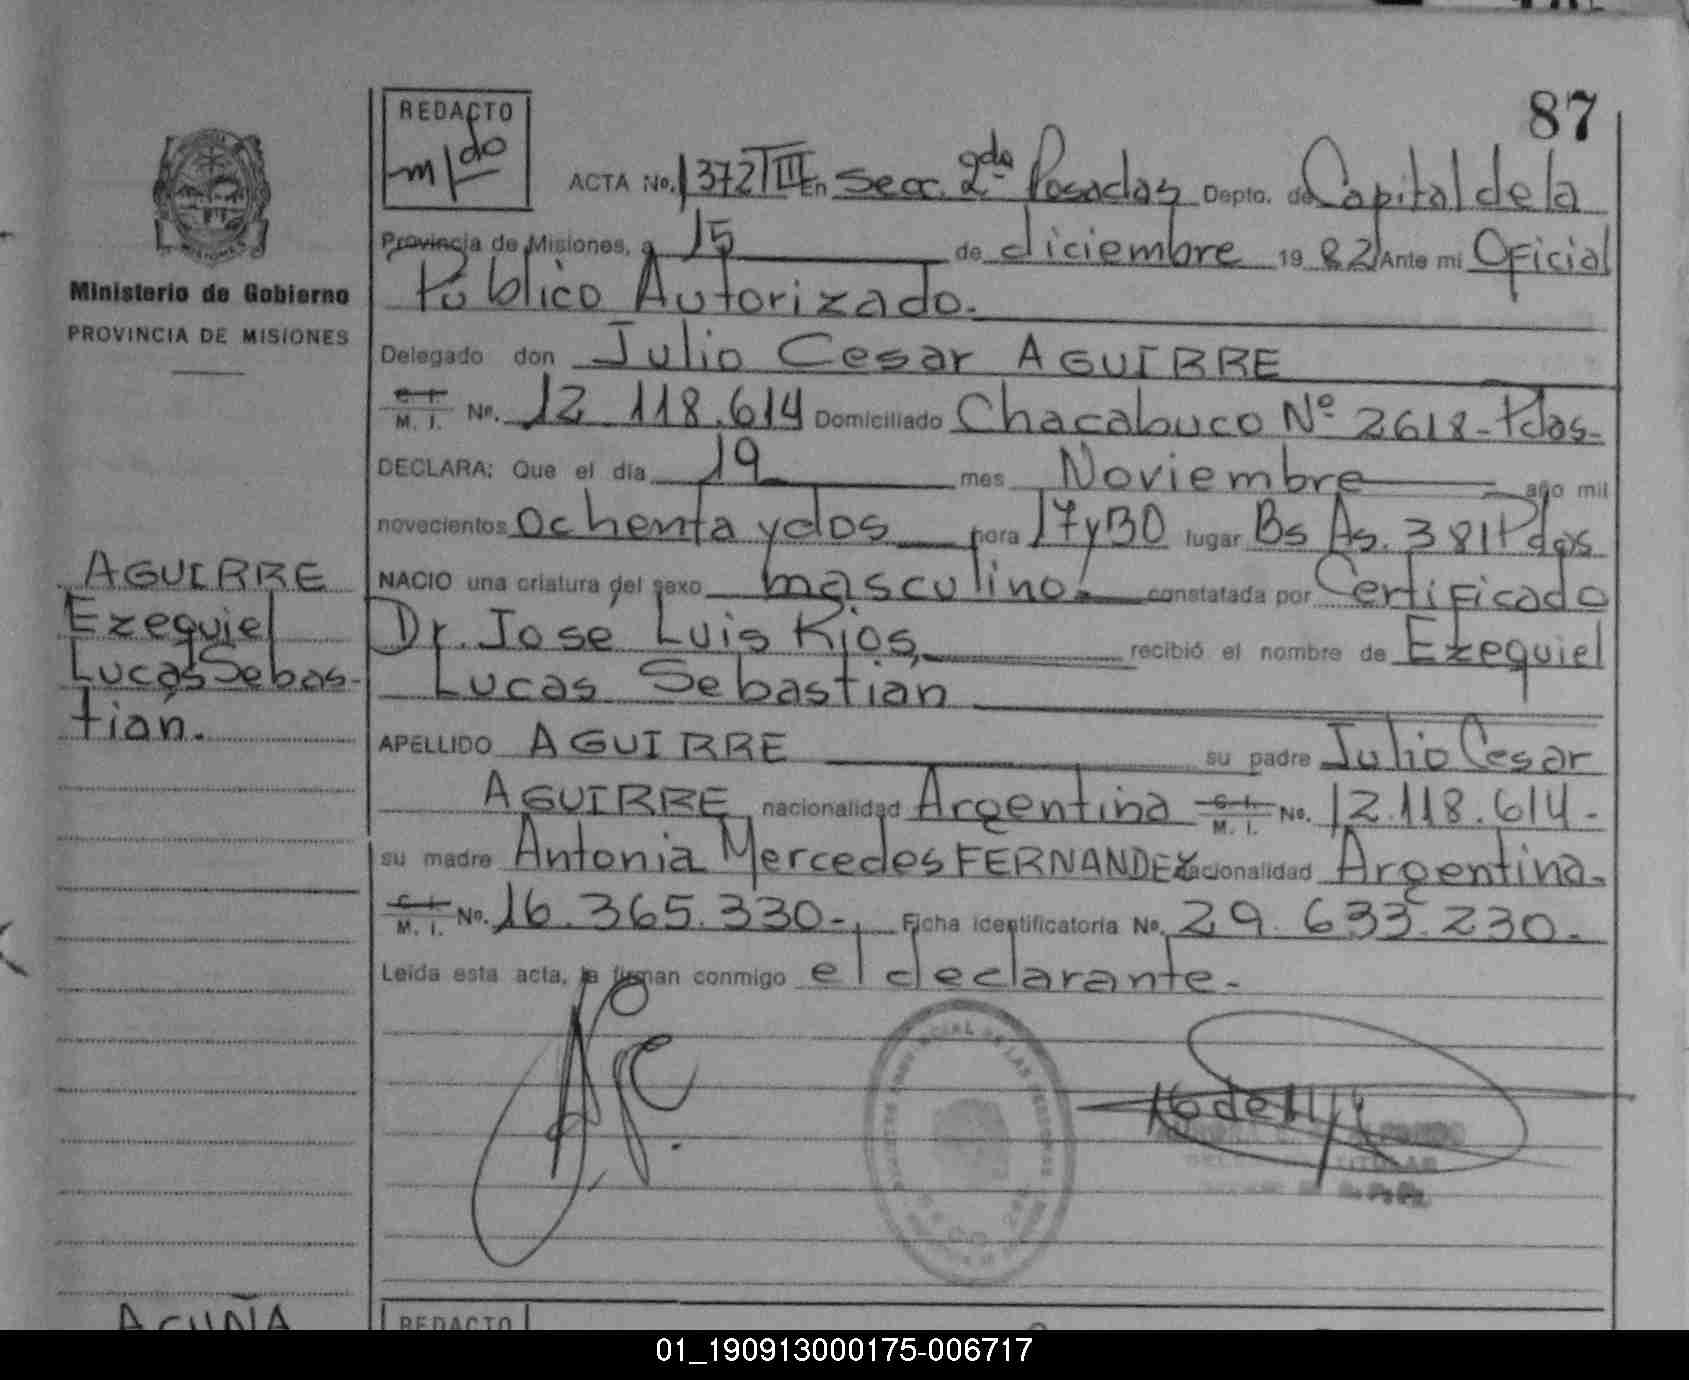 87
REDACTO
m/do
ACTA No. 1372 III En Secc. 2da Posadas Depto. de Capital de la
Provincia de Misiones, a 15 de diciembre 19 82 Ante mi Oficial
Público Autorizado.
Ministerio de Gobierno
PROVINCIA DE MISIONES
Delegado don Julio Cesar AGUIRRE
C. I.
M. I. No. 12.118.614 Domiciliado Chacabuco Nº 2618-Pdas-
DECLARA: Que el día 19 mes Noviembre año mil
novecientos ochenta y dos hora 17 y 30 lugar Bs As. 381 Pdas
NACIO una criatura del sexo masculino constatada por Certificado
Dr. Jose Luis Rios, recibió el nombre de Ezequiel
Lucas Sebastian
AGUIRRE
Ezequiel
Lucas Sebas-
tian.
APELLIDO AGUIRRE su padre Julio Cesar
AGUIRRE nacionalidad Argentina C. I. M. I. No. 12.118.614-
su madre Antonia Mercedes FERNANDEZ nacionalidad Argentina.
C. I.
M. I. No. 16.365.330-, Ficha identificatoria No. 29.633.230.
Leída esta acta, la firman conmigo el declarante.
TITULAR
ACUÑA
REDACTO
01_190913000175-006717